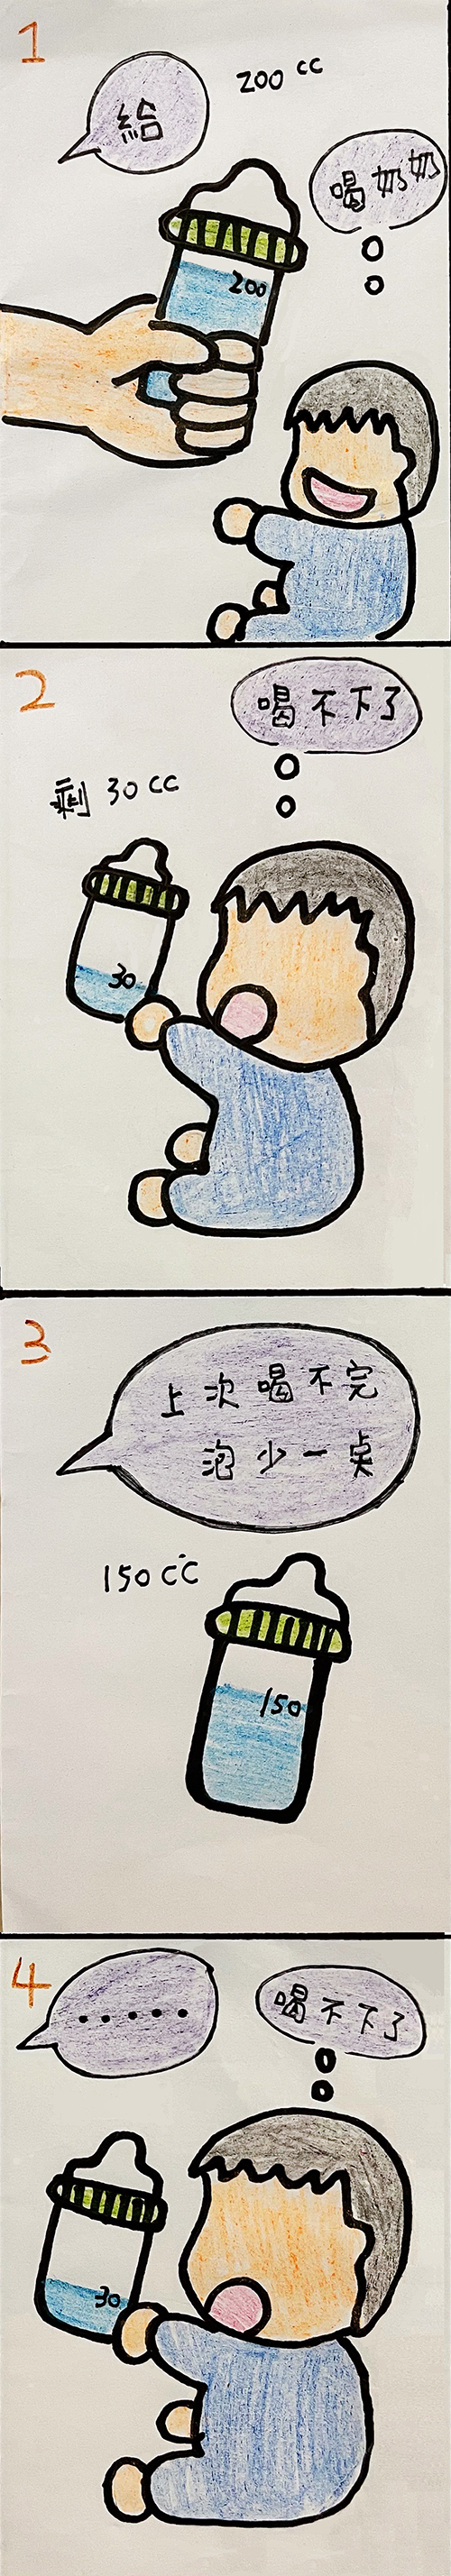 1
200 cc
給
喝奶奶
200
2
喝不下了
剩 30 cc
30
3
上次喝不完
泡少一桌
150 cc
150
4
.....
喝不下了
30